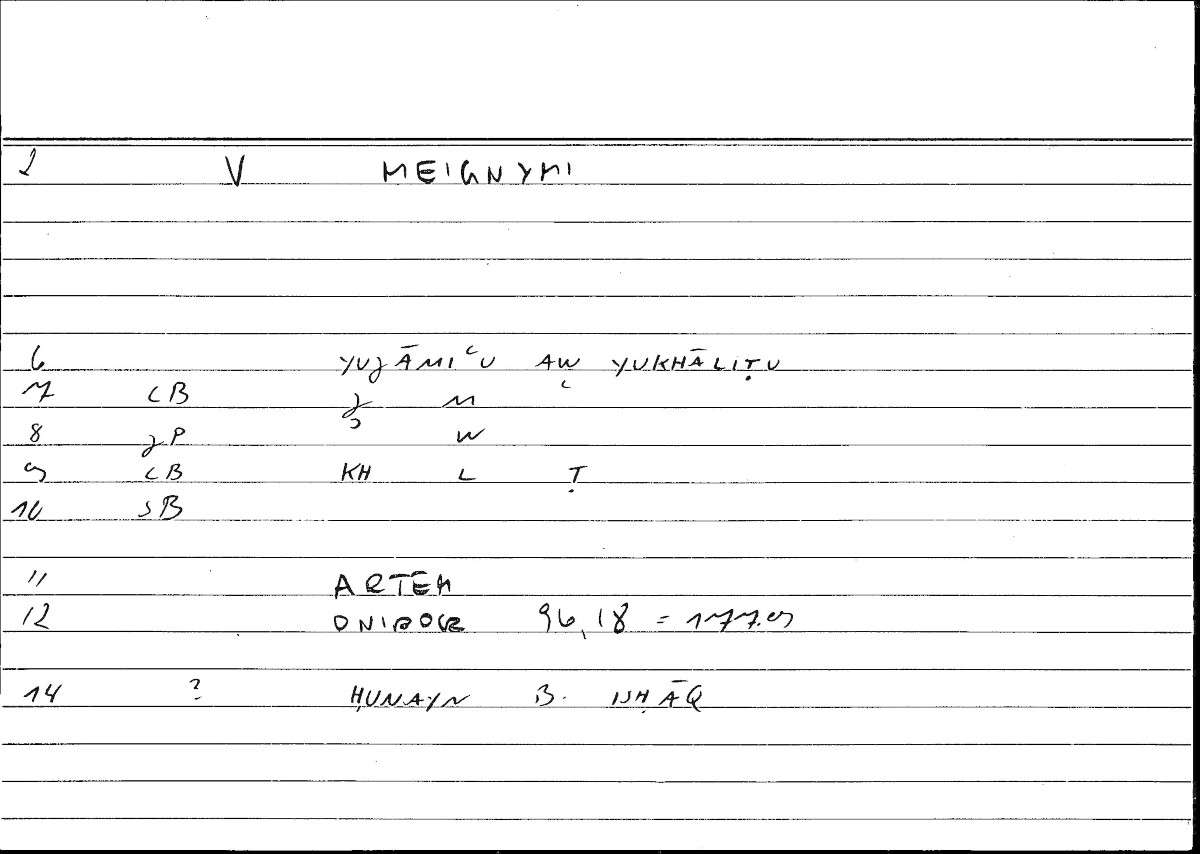 2 V MEIGNYMI
6 YUJĀMIʿU AW YUKHĀLIṬU
7 CB J M ʿ
8 JP W
9 CB KH L Ṭ
10 SB
11 ARTEM
12 ONIROCR 96,18 = 177.9
14 ? ḤUNAYN B. ISḤĀQ